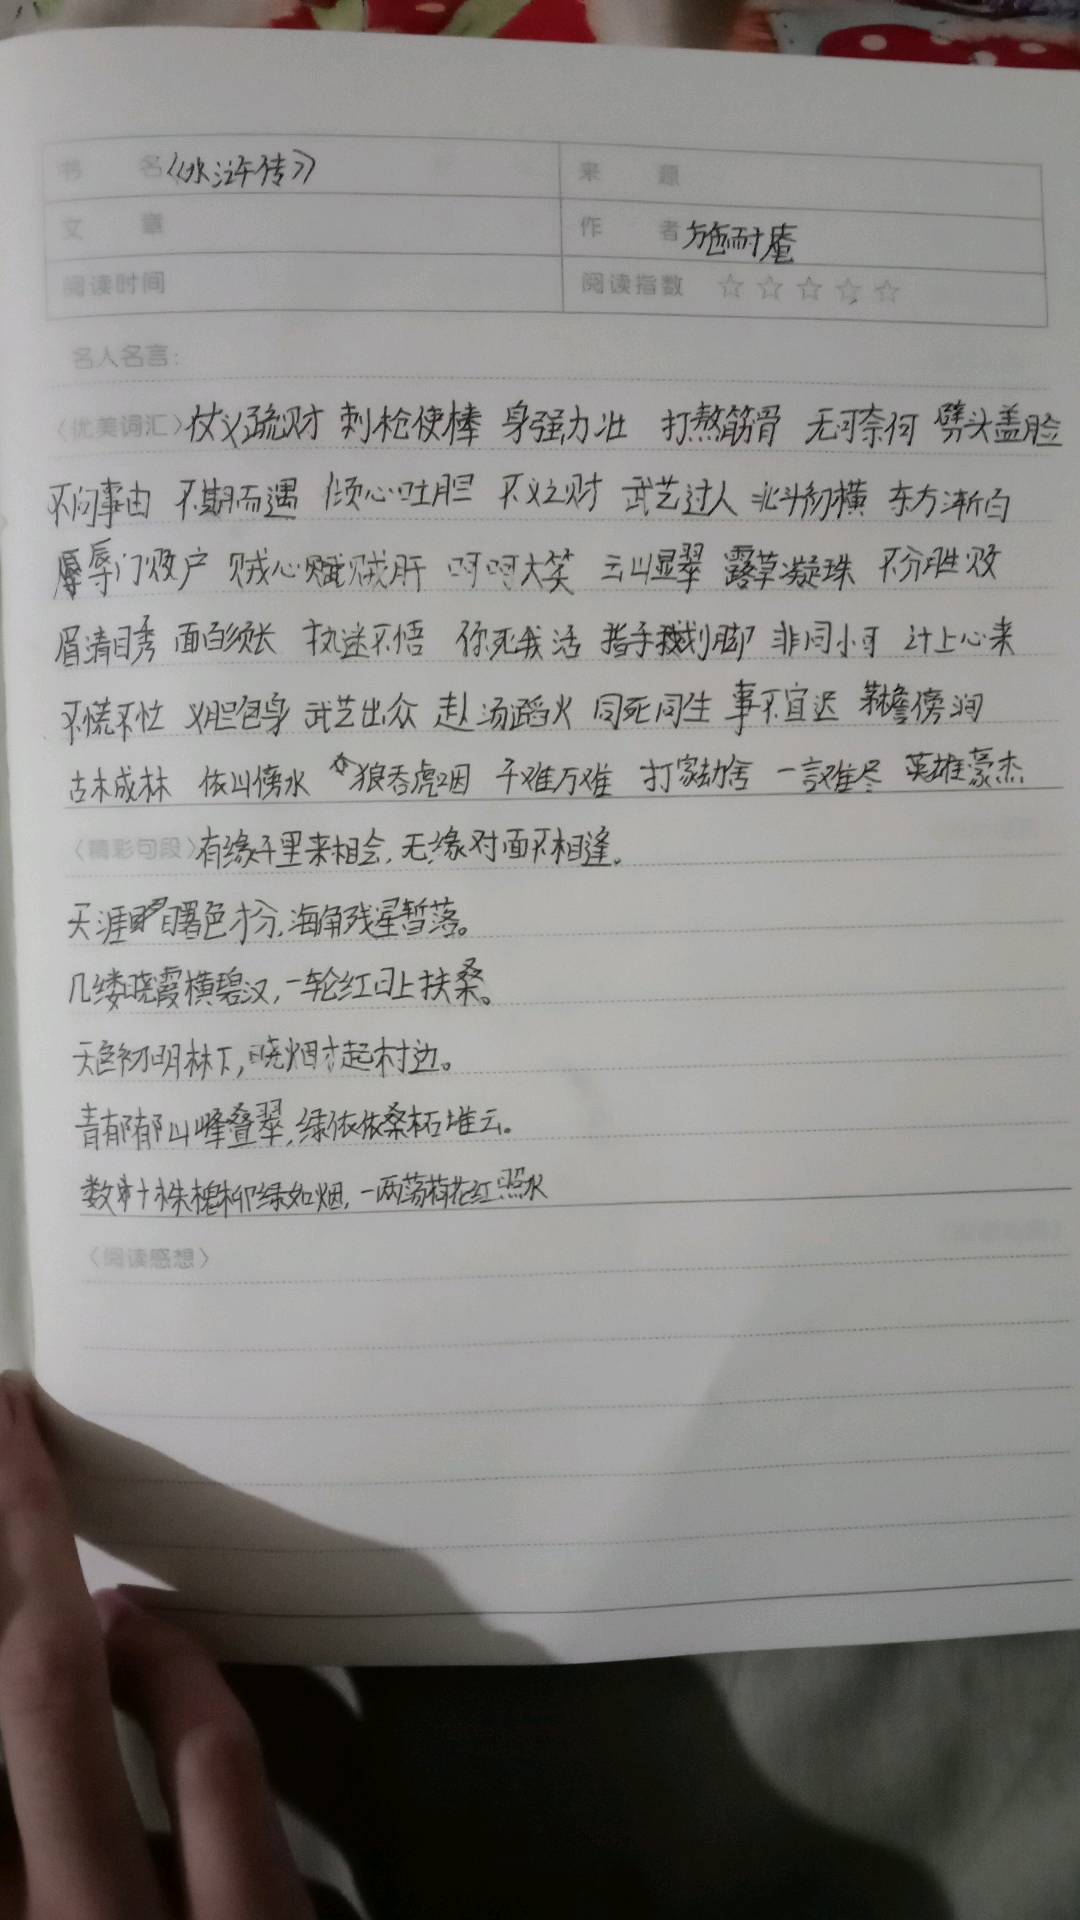 书 名 《水浒传》 来 源
文 章 作 者 施耐庵
阅读时间 阅读指数 ☆☆☆☆☆
名人名言:
〈优美词汇〉仗义疏财 刺枪使棒 身强力壮 打熬筋骨 无可奈何 劈头盖脸
不问事由 不期而遇 倾心吐胆 不义之财 武艺过人 北斗初横 东方渐白
辱门败户 贼心贼肝 呵呵大笑 云山显翠 露草凝珠 不分胜败
眉清目秀 面白须长 执迷不悟 你死我活 指手划脚 非同小可 计上心来
不慌不忙 义胆包身 武艺出众 赴汤蹈火 同死同生 事不宜迟 茅檐傍涧
古木成林 依山傍水 狼吞虎咽 千难万难 打家劫舍 一言难尽 英雄豪杰
〈精彩句段〉有缘千里来相会,无缘对面不相逢。
天涯曙色才分,海角残星暂落。
几缕晓霞横碧汉,一轮红日上扶桑。
天色初明林下,晓烟才起村边。
青郁郁山峰叠翠,绿依依桑柘堆云。
数十株槐柳绿如烟,一两荡荷花红照水
〈阅读感想〉